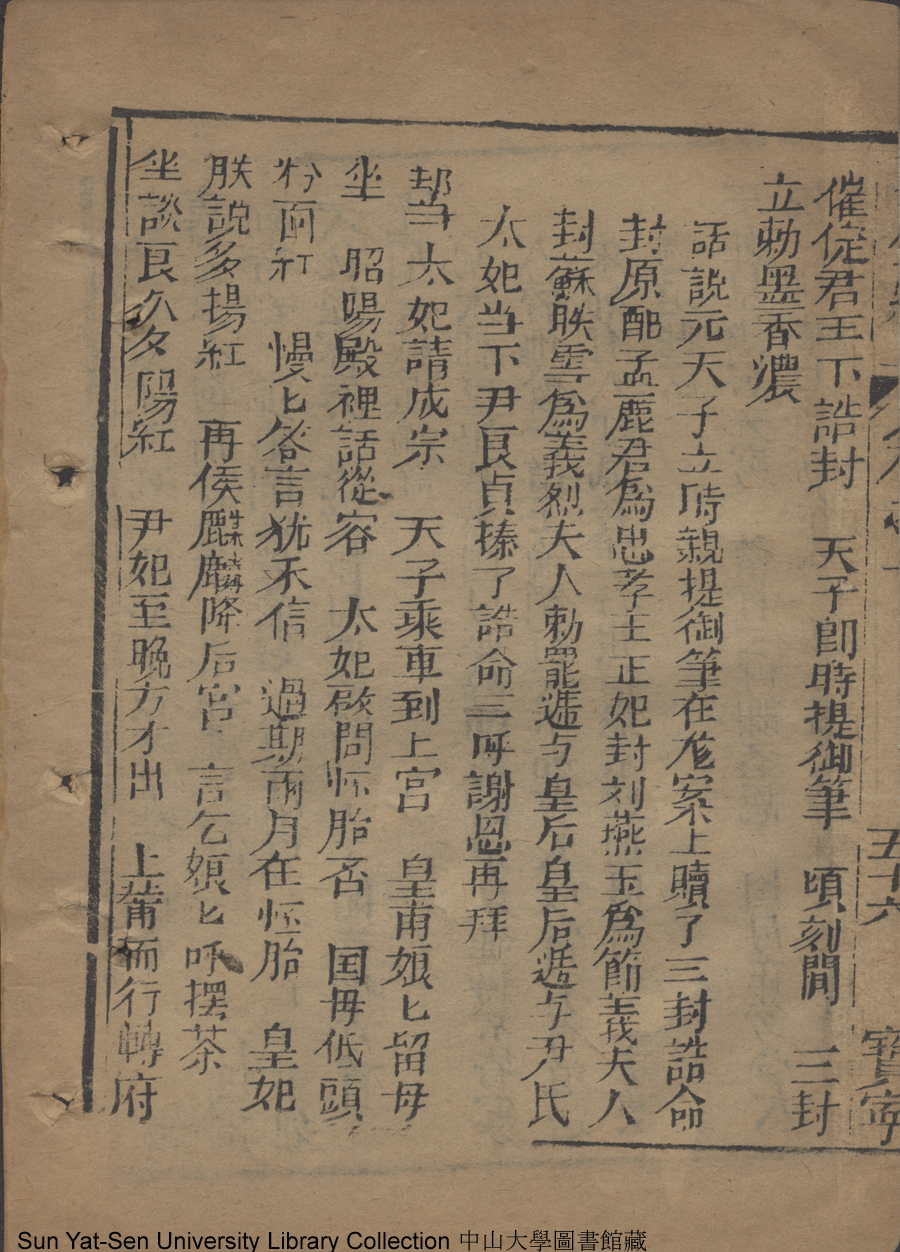 五十六 寶寧
催促君王下誥封 天子即時提御筆 頃刻間 三封
立勅墨香濃
話說元天子立時親提御筆在龙案上贖了三封誥命
封原配孟麗君為忠孝王正妃封刘燕玉為節義夫人
封蘇映雪為義烈夫人勅罷遞与皇后皇后遞与尹氏
太妃当下尹良貞捧了誥命三呼謝恩再拜
却当太妃請成宗 天子乘車到上宮 皇甫娘匕留母
坐 昭陽殿裡話從容 太妃啟問怀胎否 国母低頭
粉面紅 慢匕答言犹不信 過期兩月在怀胎 皇妃
朕說多揚紅 再俟麒麟降后宮 言乞娘匕呼擺茶
坐談良久夕陽紅 尹妃至晚方才出 上輦而行轉府
Sun Yat-Sen University Library Collection 中山大學圖書館藏